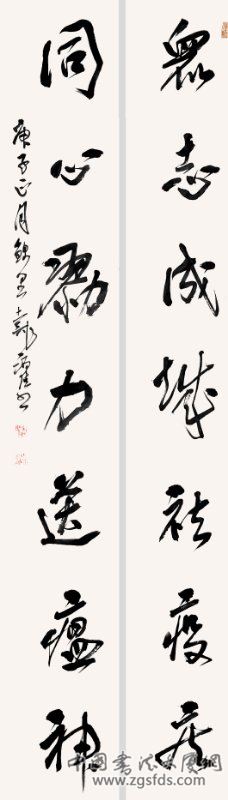 眾志成城祛疫疾
同心勠力送瘟神
庚子正月
中国书法家园网
www.zgsfds.com